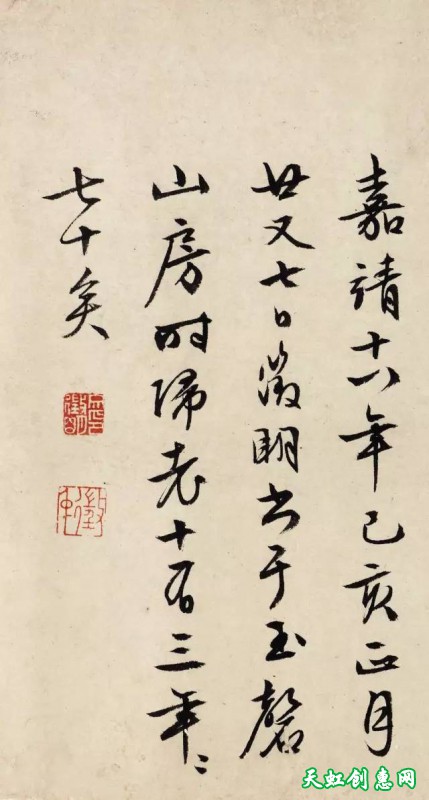 嘉靖十八年己亥正月
廿又七日徵明書于玉磬
山房時歸老十有三年〻
七十矣
天虹创惠网